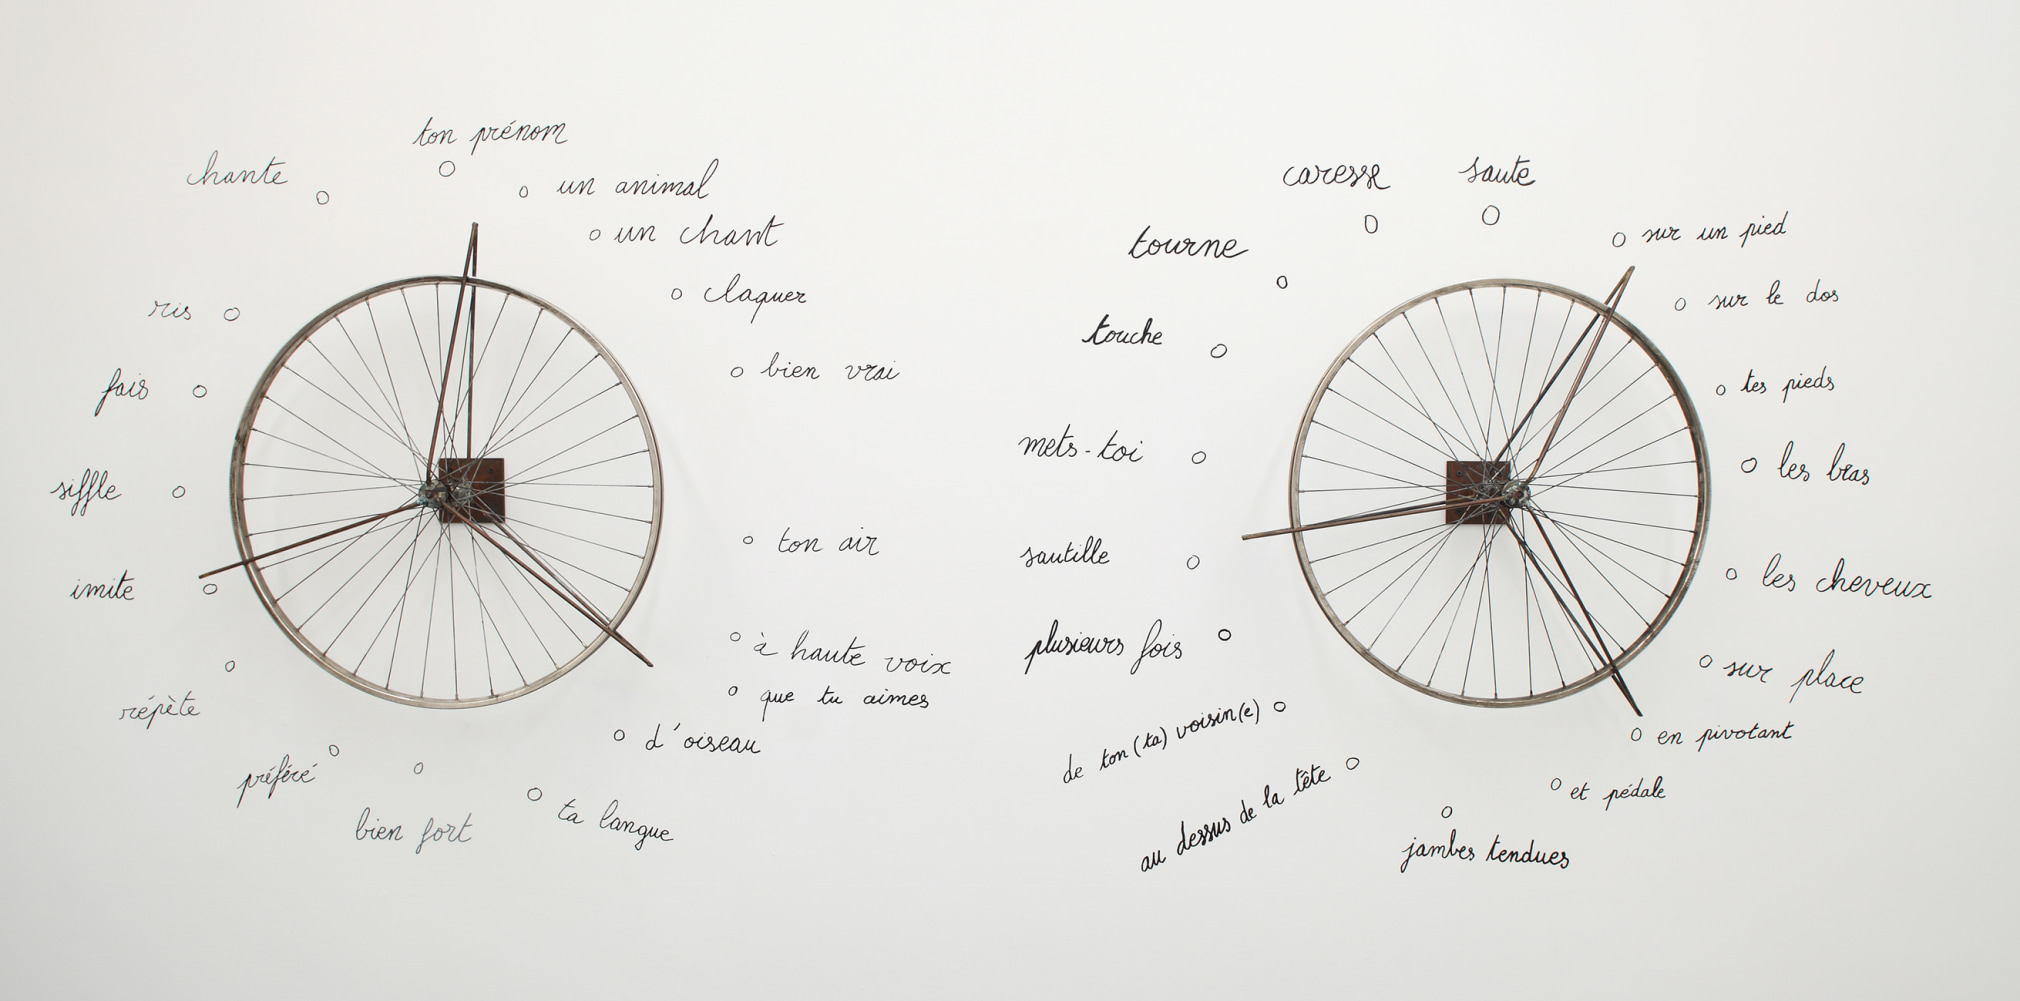 ton prénom
un animal
un chant
claquer
bien vrai
ton air
à haute voix
que tu aimes
d'oiseau
ta langue
bien fort
préféré
répète
imite
siffle
fais
ris
chante
caresse
saute
sur un pied
sur le dos
tes pieds
les bras
les cheveux
sur place
en pivotant
et pédale
jambes tendues
au dessus de la tête
de ton (ta) voisin(e)
plusieurs fois
sautille
mets-toi
touche
tourne